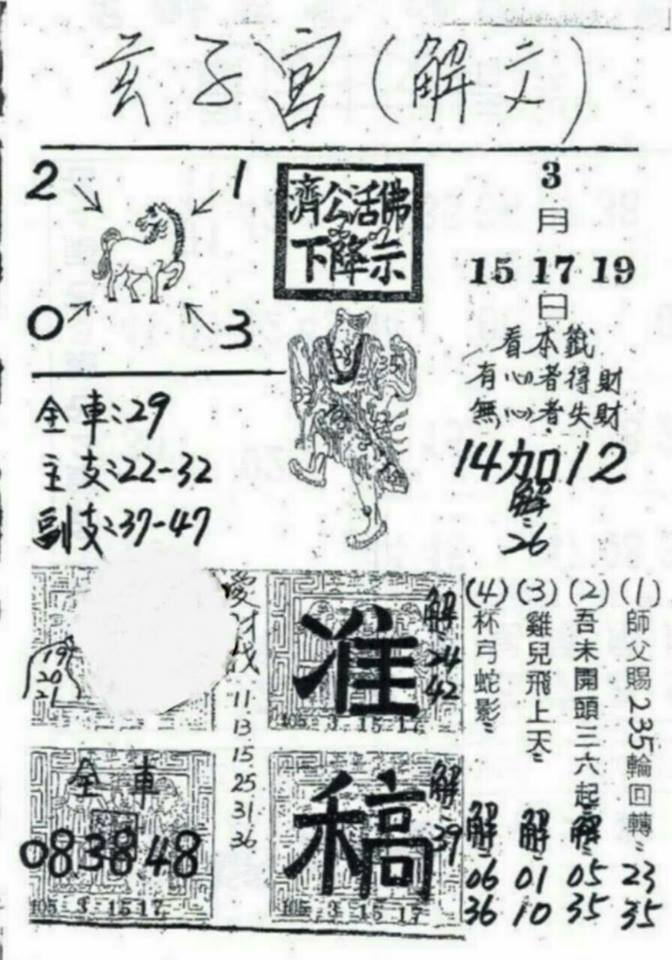 玄子宮(解文)
2 1
0 3
濟公活佛
下降示
3
月
15 17 19
日
看本籤
有心者得財
無心者失財
14加12
解=26
全車:29
主支:22-32
副支:37-47
19
20
21
愛財找
11
13
15
25
31
36
准
解=24
42
105 3 15 17
全車
08 38 48
105 3 15 17
稿
解=39
105 3 15 17
(1)師父賜235輪回轉=23 35
(2)吾未開頭三六起解=05 35
(3)雞兒飛上天=解=01 10
(4)杯弓蛇影=解=06 36